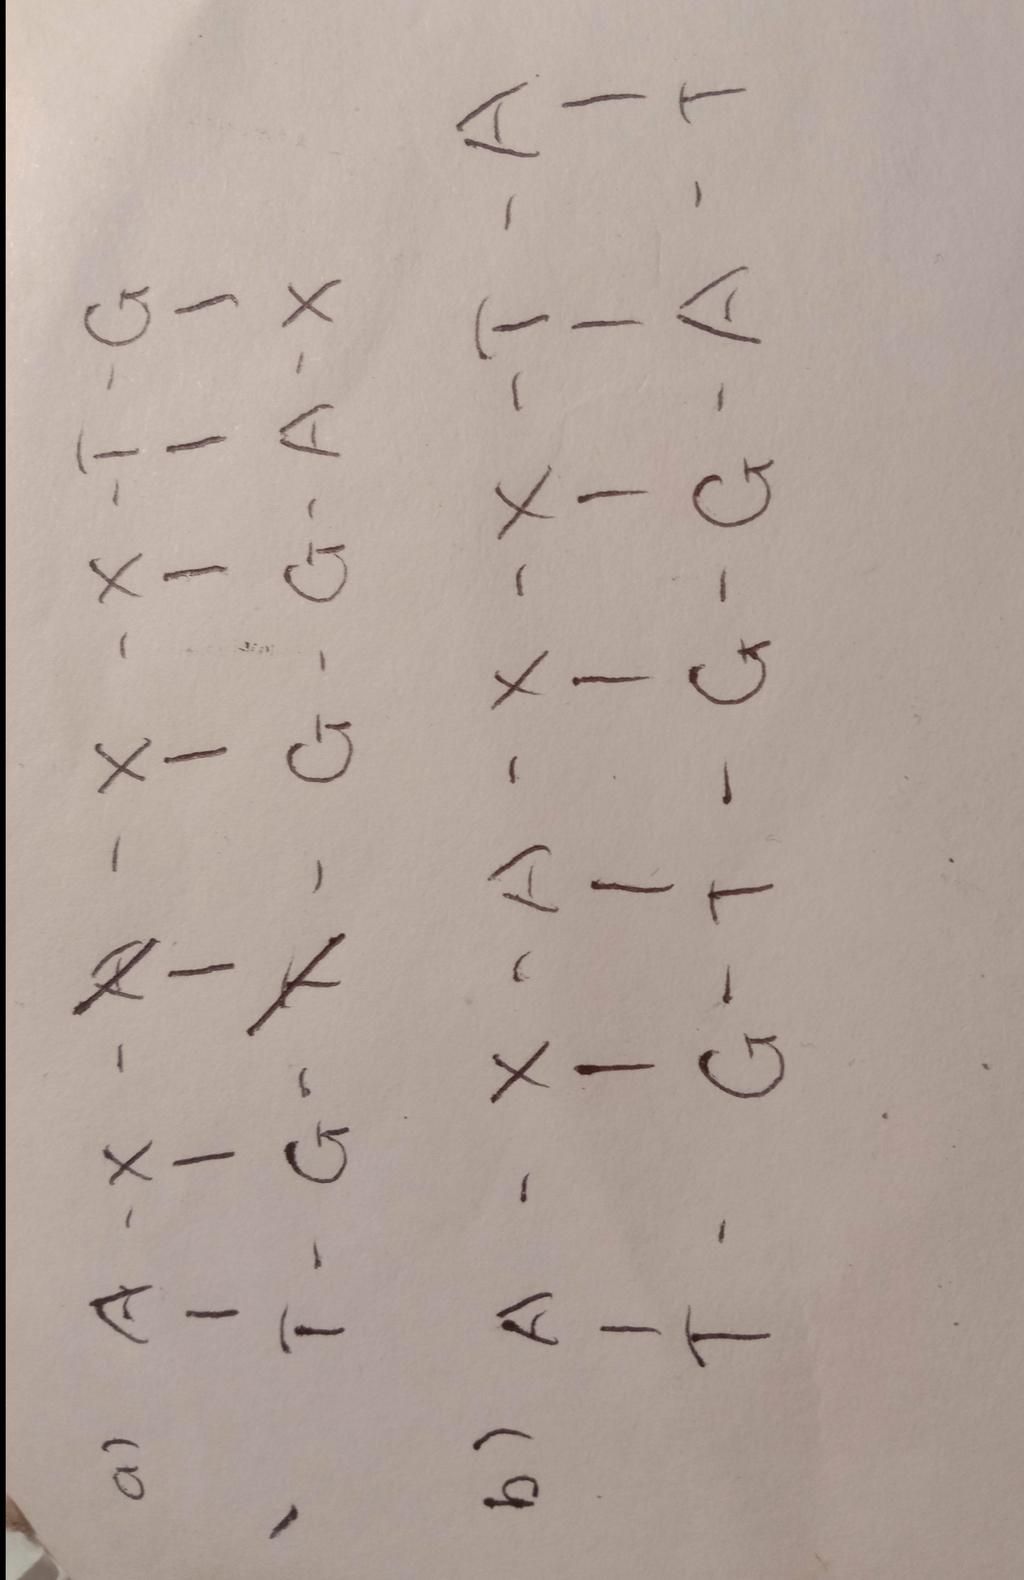 a) A - X - A - X - X - T - G
| | | | | | |
T - G - T - G - G - A - X
b) A - X - A - X - X - T - A
| | | | | | |
T - G - T - G - G - A - T